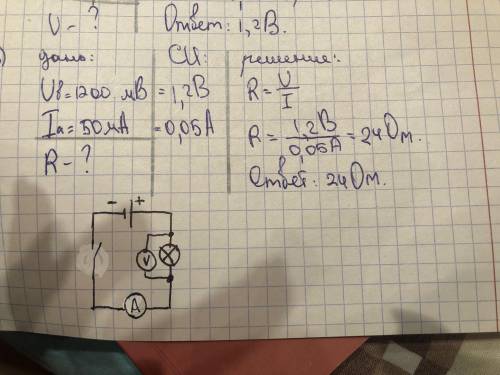 U - ? Ответ: 1,2В.
) дано: СИ: решение:
Uв = 1200 мВ = 1,2В R = U/I
Iа = 50мА = 0,05А R = 1,2В/0,05А = 24Ом.
R - ? Ответ: 24Ом.
- +
V
A